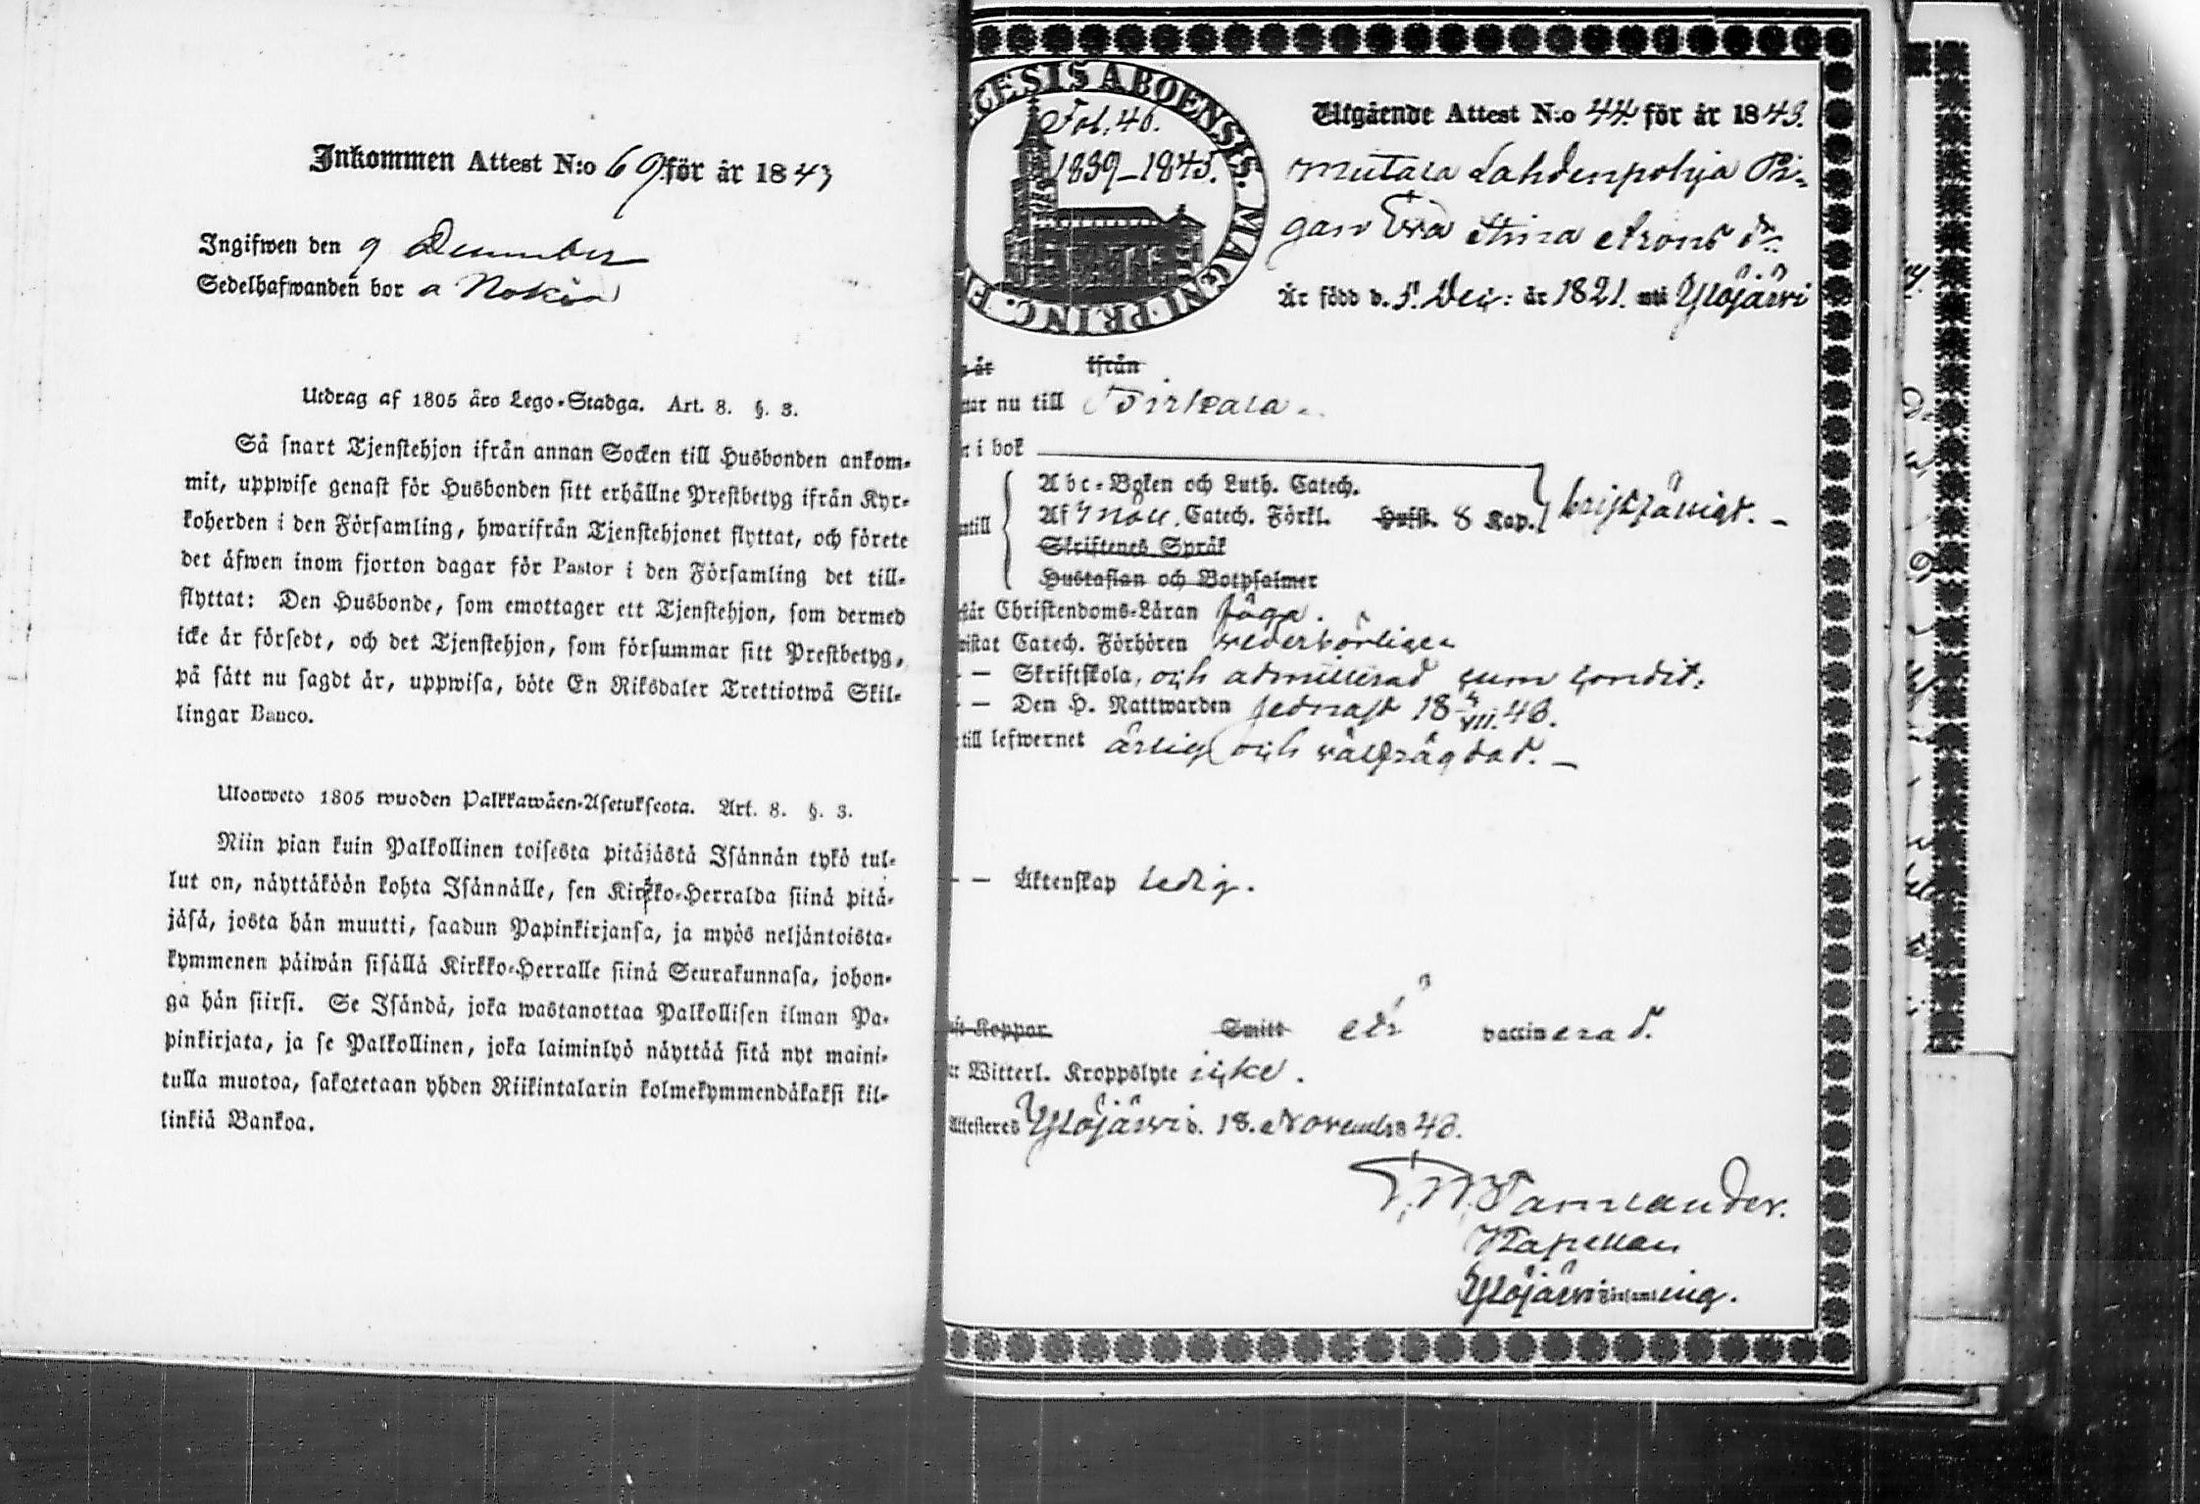 Inkommen Attest N:o 69 för år 1843
Ingifwen den 9 December
Sedelhafwanden bor a Nokia
Utdrag af 1805 års Lego-Stadga. Art. 8. §. 3.
Så snart Tjenstehjon ifrån annan Socken till Husbonden ankom-
mit, uppwise genast för Husbonden sitt erhållne Prestbetyg ifrån Kyr-
koherden i den Församling, hwarifrån Tjenstehjonet flyttat, och förete
det äfwen inom fjorton dagar för Pastor i den Församling det till-
flyttat: Den Husbonde, som emottager ett Tjenstehjon, som dermed
icke är försedt, och det Tjenstehjon, som försummar sitt Prestbetyg,
på sätt nu sagdt är, uppwisa, böte En Riksdaler Trettiotwå Skil-
lingar Banco.
Ulosweto 1805 wuoden Palkkawäen-Asetuksesta. Art. 8. §. 3.
Niin pian kuin Palkollinen toisesta pitäjästä Isännän tykö tul-
lut on, näyttäköön kohta Isännälle, sen Kirkko-Herralda siinä pitä-
jäsä, josta hän muutti, saadun Papinkirjansa, ja myös neljäntoista-
kymmenen päiwän sisällä Kirkko-Herralle siinä Seurakunnasa, johon-
ga hän siirsi. Se Isändä, joka wastanottaa Palkollisen ilman Pa-
pinkirjata, ja se Palkollinen, joka laiminlyö näyttää sitä nyt maini-
tulla muotoa, sakotetaan yhden Riikintalarin kolmekymmendäkaksi kil-
linkiä Bankoa.
ECESIS ABOENSIS. MAGNI PRINC. F
Fol. 46.
1839–1845.
Utgående Attest N:o 44 för år 1843.
Mutala Lahdenpohja Pi-
gan Ewa Stina Arons dr.
Är född d. 5. Dec: år 1821. uti Ylöjärwi
år ifrån
nar nu till Birkala.
i bok
Abc-Boken och Luth. Catech.
Af Catech. Förkl. Husst. 8 Kap. bristfäligt. –
ntill
Skriftenes Språk
Hustaflan och Botpsalmer
står Christendoms-Läran föga.
wistat Catech. Förhören wederbörligen
– – Skriftskola, och admitterad cum condit:
– – Den H. Nattwarden sednast 18 4/VII. 43.
till lefwernet ärlig och välfrägdad. –
– – Äktenskap ledig.
Koppor Smitt vaccinerad.
Witterl. Kroppslyte icke.
Attesteres Ylöjärwi d. 18. November 43.
Kapellan
Ylöjärwi Församling.